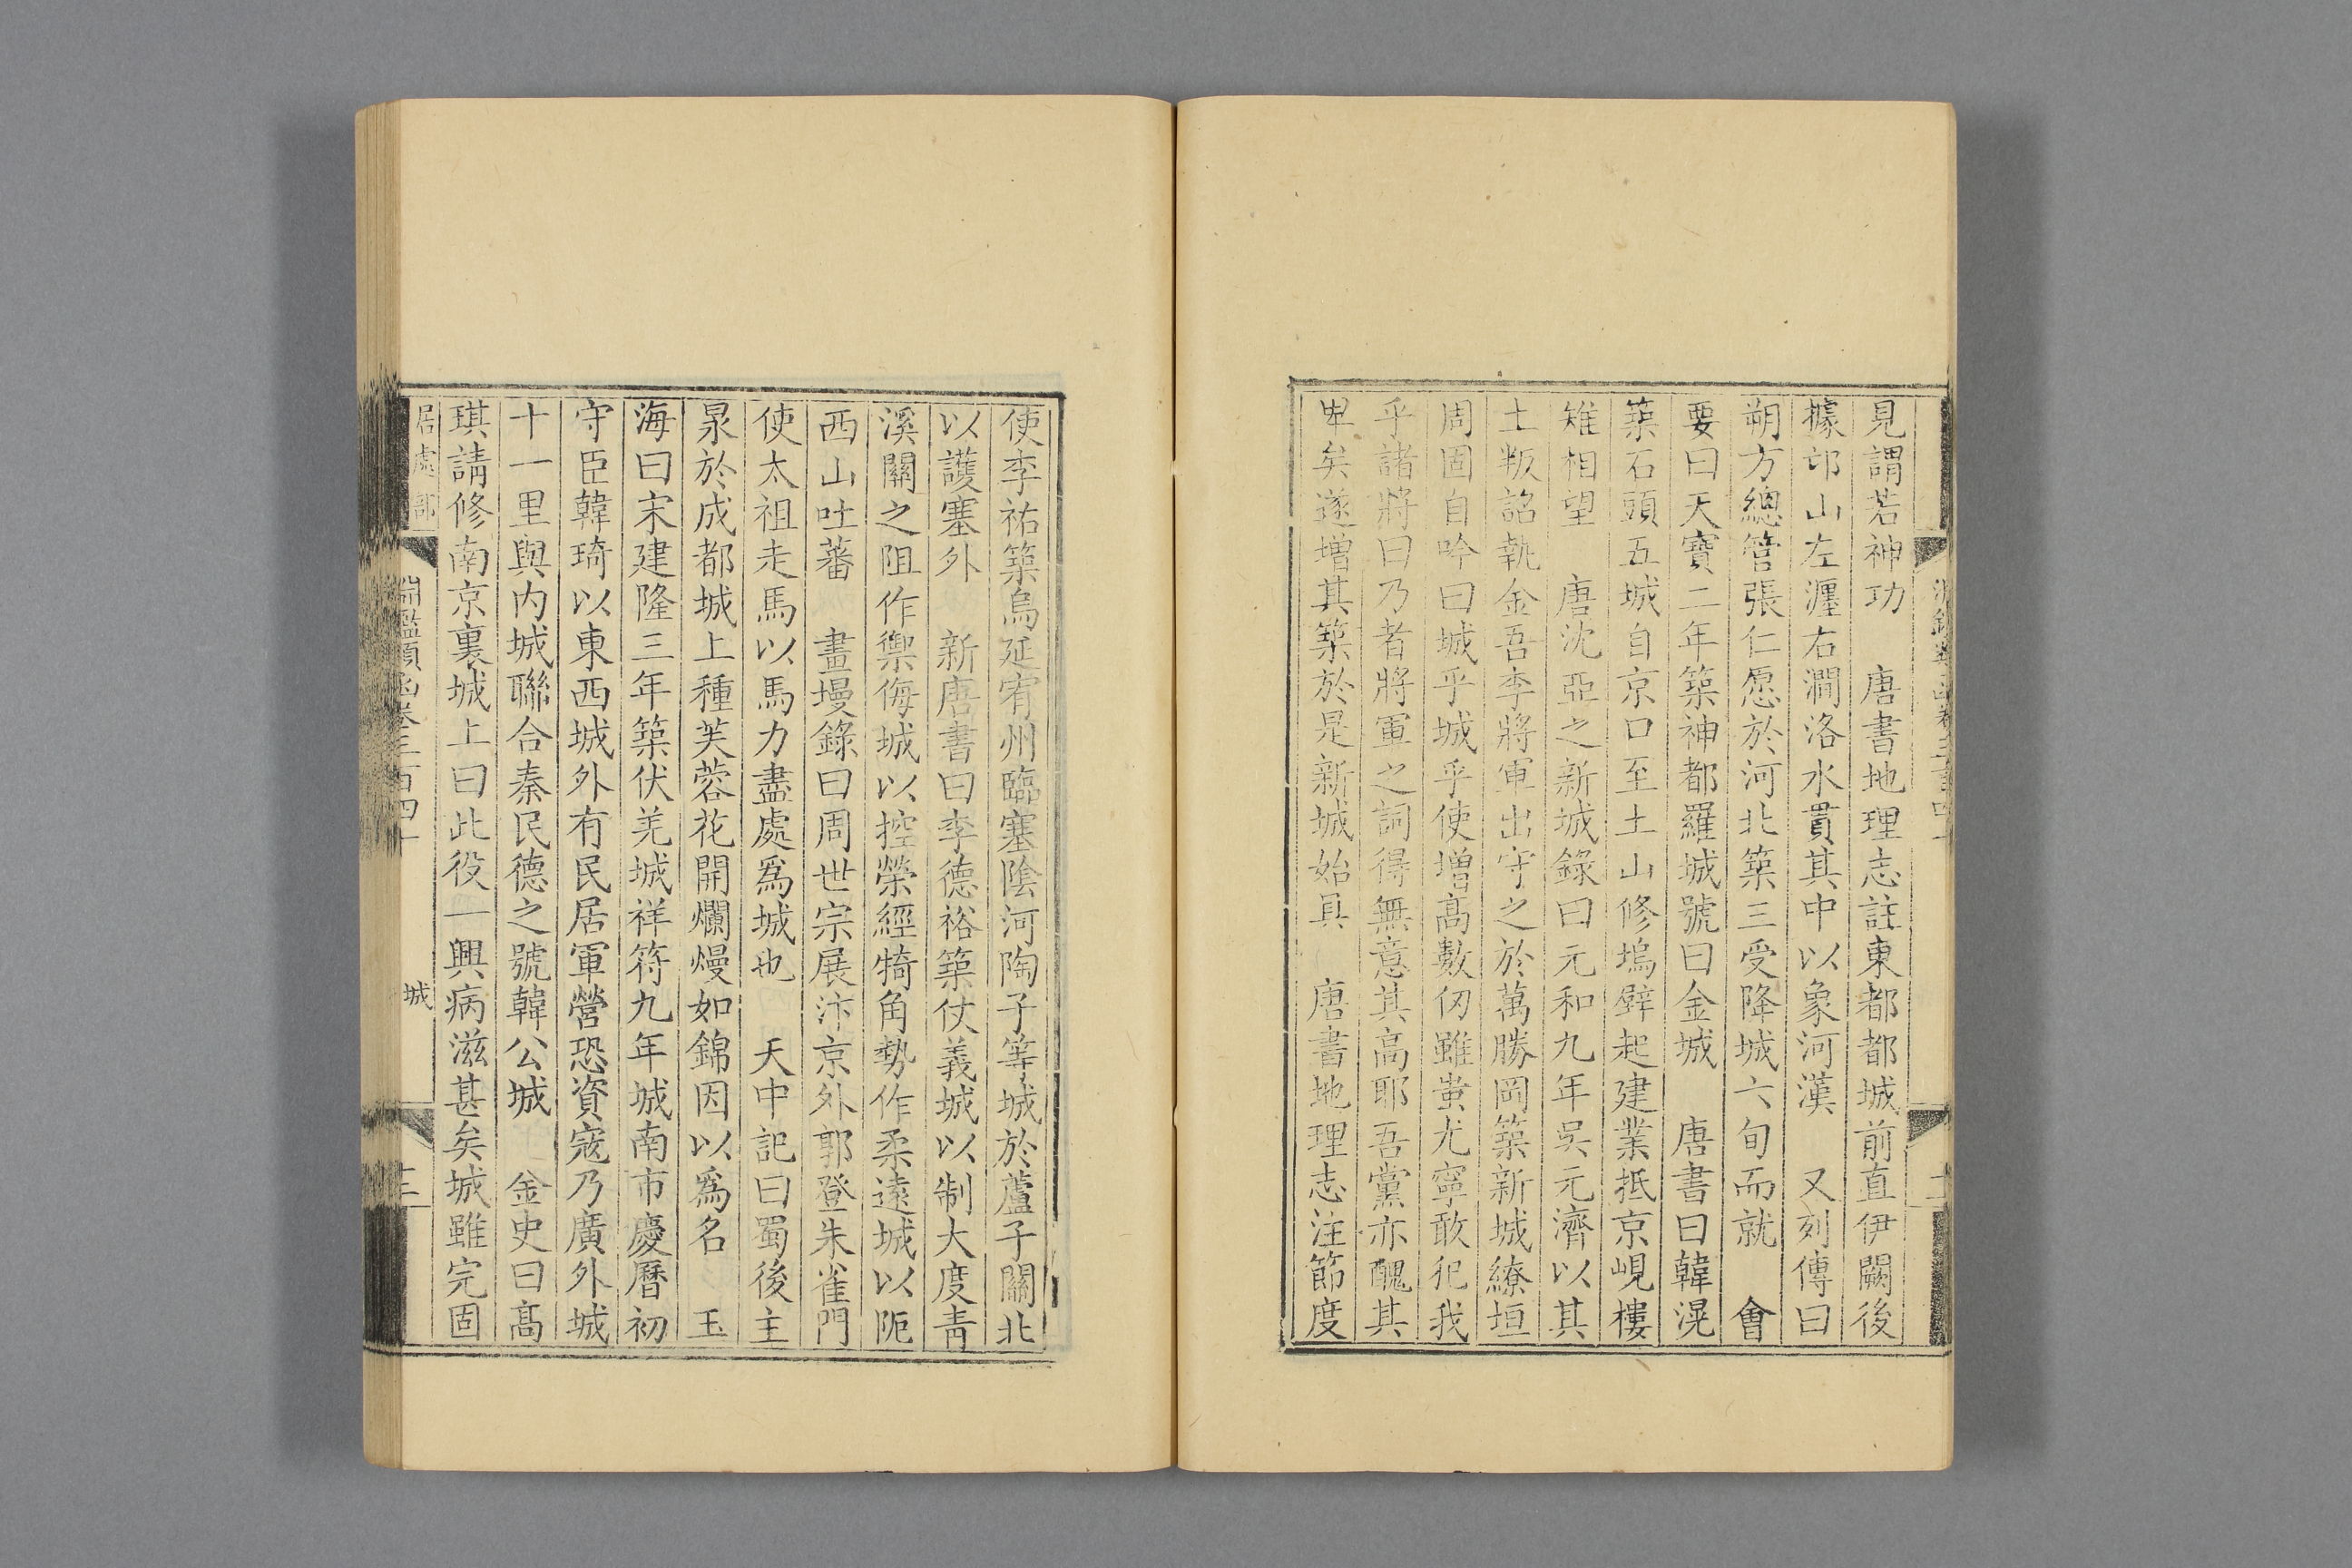 見謂若神功　唐書地理志註東都都城前直伊闕後
據邙山左瀍右澗洛水貫其中以象河漢　又列傳曰
朔方總管張仁愿於河北築三受降城六旬而就　會
要曰天寶二年築神都羅城號曰金城　唐書曰韓滉
築石頭五城自京口至土山修塢壁起建業抵京峴樓
雉相望　唐沈亞之新城錄曰元和九年吳元濟以其
土叛詔執金吾李將軍出守之於萬勝岡築新城繚垣
周固自吟曰城乎城乎使增高數仞雖蚩尤寧敢犯我
乎諸將曰乃者將軍之詞得無意其高耶吾黨亦醜其
卑矣遂增其築於是新城始具　唐書地理志注節度
使李祐築烏延宥州臨塞陰河陶子等城於蘆子關北
以護塞外　新唐書曰李德裕築仗義城以制大度青
溪關之阻作禦侮城以控榮經犄角勢作柔遠城以阨
西山吐蕃　畫墁錄曰周世宗展汴京外郭登朱雀門
使太祖走馬以馬力盡處為城也　天中記曰蜀後主
泉於成都城上種芙蓉花開爛熳如錦因以為名　玉
海曰宋建隆三年築伏羌城祥符九年城南市慶曆初
守臣韓琦以東西城外有民居軍營恐資寇乃廣外城
十一里與內城聯合秦民德之號韓公城　金史曰高
琪請修南京裏城上曰此役一興病滋甚矣城雖完固
居處部　淵鑑類函卷三百四十　城